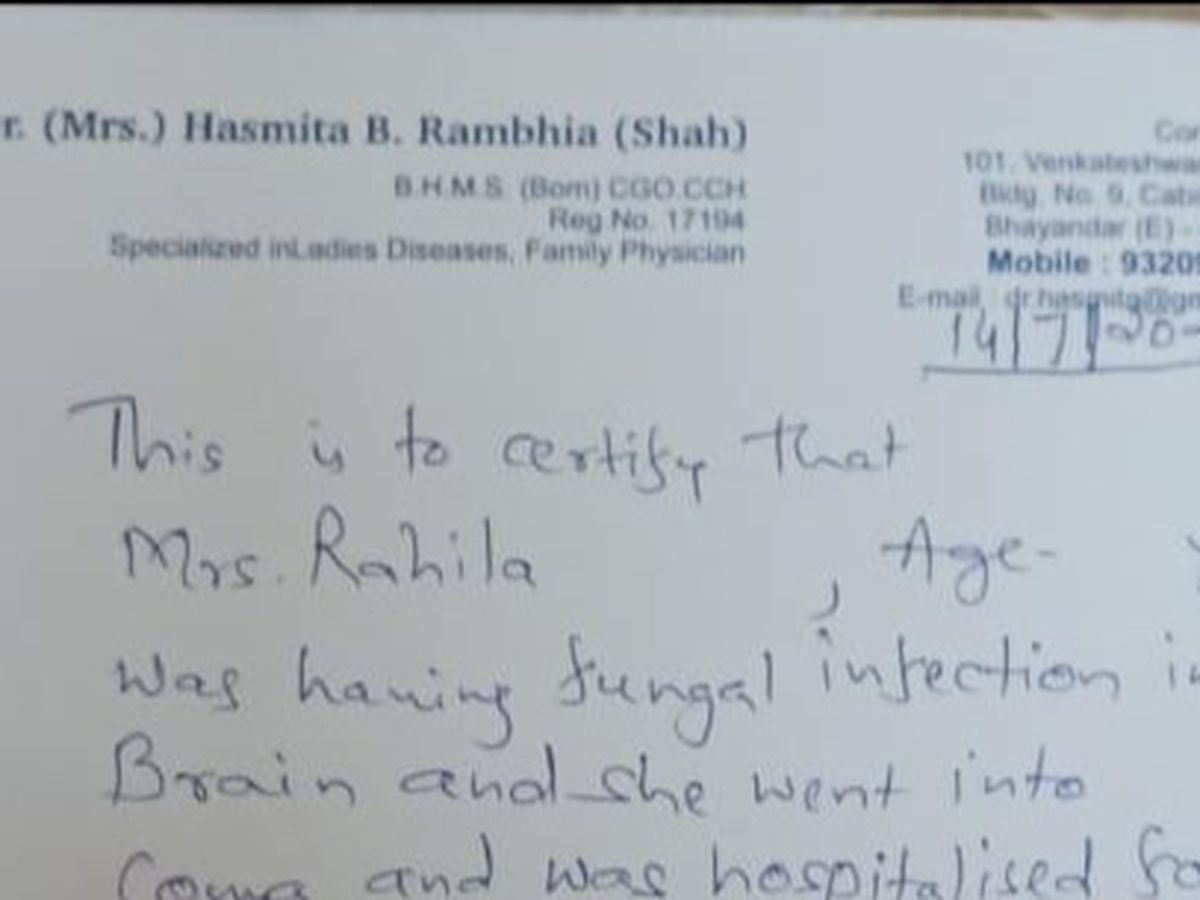 r. (Mrs.) Hasmita B. Rambhia (Shah)
B.H.M.S. (Bom) CGO.CCH
Reg No. 17194
Specialized inLadies Diseases, Family Physician
101, Venkateshwa
Bldg. No. 9, Cab
Bhayandar (E) -
Mobile : 93209
E-mail : dr.hasmita@gm
14/7/20
This is to certify that
Mrs. Rahila , Age-
was having fungal infection in
Brain and she went into
Coma and was hospitalised fo